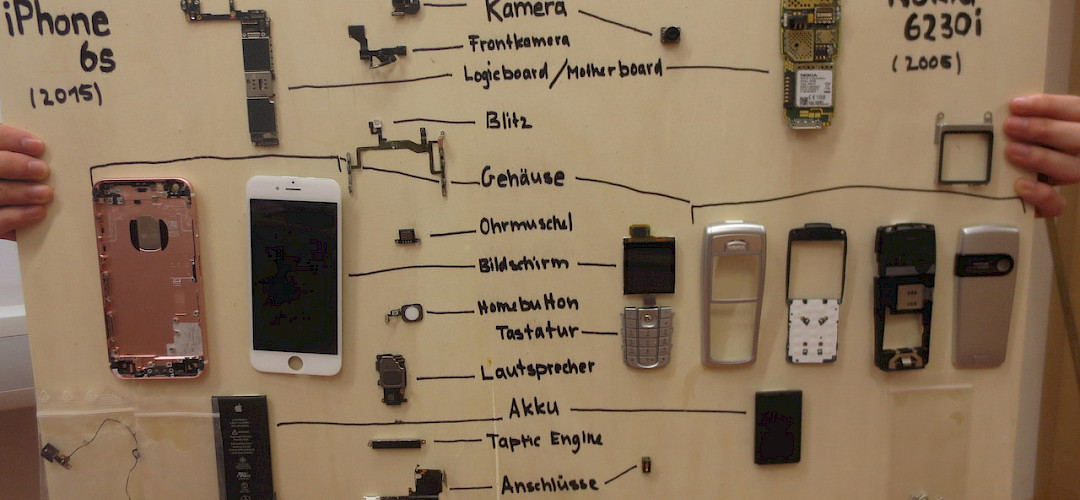 iPhone
6s
(2015)
Kamera
Frontkamera
Logicboard/Motherboard
Blitz
Gehäuse
Ohrmuschel
Bildschirm
Homebutton
Tastatur
Lautsprecher
Akku
Taptic Engine
Anschlüsse
Nokia
6230i
(2005)
NOKIA